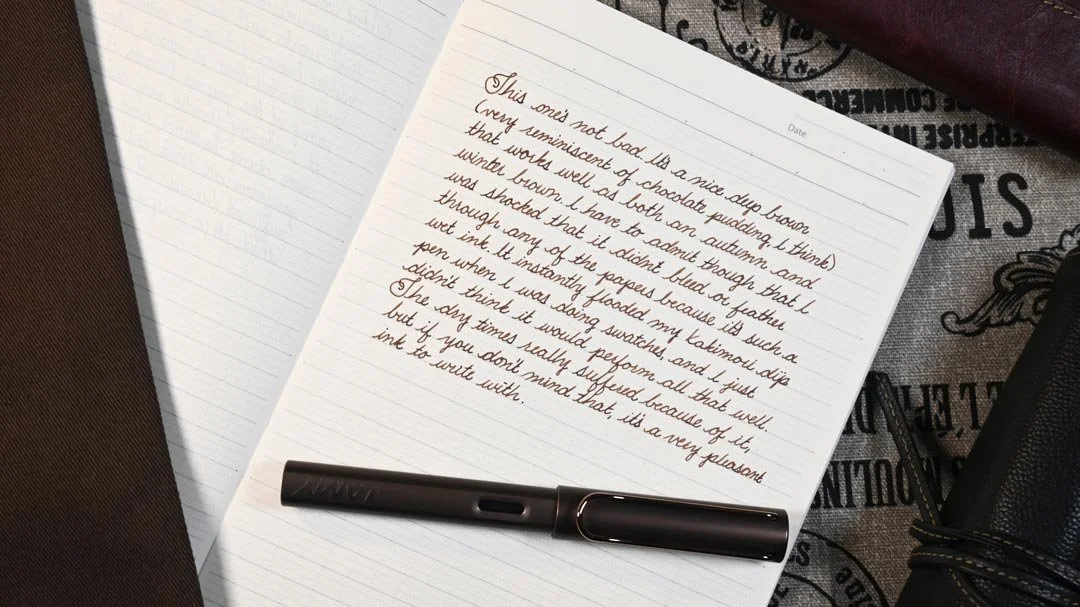 Date
This one's not bad. It's a nice deep brown
(very reminiscent of chocolate pudding, I think)
that works well as both an autumn and
winter brown. I have to admit though that I
was shocked that it didn't bleed or feather
through any of the papers because it's such a
wet ink. It instantly flooded my Kakimori dip
pen when I was doing swatches, and I just
didn't think it would perform all that well.
The dry times really suffered because of it,
but if you don't mind that, it's a very pleasant
ink to write with.
LAMY
PARIS
DE COMMERC
SIO
L'ÉPI
MOULIN